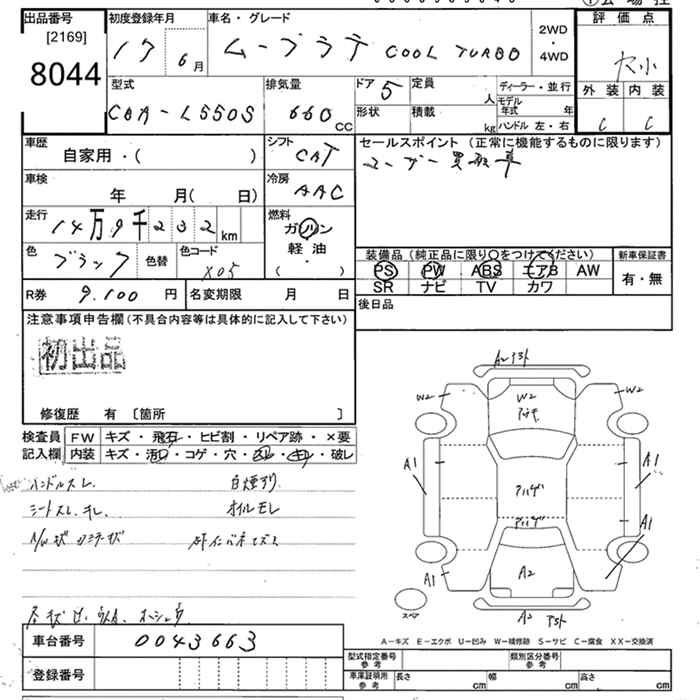 出品番号
[2169]
8044
初度登録年月
17 6月
車名・グレード
ムーブラテ COOL TURBO
2WD
・
4WD
評価点
外装 内装
C C
型式
CBA-L550S
排気量
660 CC
ドア
5
定員
人
形状
積載
kg
ディーラー・並行
モデル年式 年
ハンドル 左・右
車歴
自家用・( )
シフト
CAT
セールスポイント (正常に機能するものに限ります)
ユーザー買取車
車検
年 月( 日)
冷房
AAC
走行
14万9千232km
燃料
ガソリン
軽油
( ・ )
色
ブラック
色替
色コード
X05
装備品(純正品に限り○をつけてください)
PS PW ABS エアB AW
SR ナビ TV カワ
新車保証書
有・無
R券
9,100円
名変期限 月 日
後日品
注意事項申告欄(不具合内容等は具体的に記入して下さい)
初出品
修復歴 有 [箇所 ]
検査員
記入欄
FW キズ・飛石・ヒビ割・リペア跡・×要
内装 キズ・汚れ・コゲ・穴・スレ・キレ・破レ
ハンドルスレ 白煙有り
シートスレ.キレ オイルモレ
W2
W2
A1
A1
アハゲ
アハゲ
A1
A1
A2
A2
スペア
A-キズ E-エクボ U-凹み W-補修跡 S-サビ C-腐食 XX-交換済
車台番号
0043663
登録番号
型式指定番号
参考
類別区分番号
参考
車庫証明用
参考
長さ cm
幅 cm
高さ cm